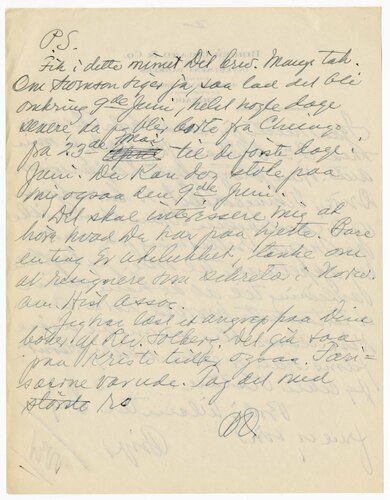 P.S.
Fik i dette minut Dit brev. Mange tak.
Om Swenson siger ja, saa lad det bli
omkring 9de Juni, helst nogle dage
senere, da jeg blir borte fra Chicago
fra 23de Mai til de første dage i
Juni. Du kan dog stole paa
mig ogsaa den 9de Juni.
Det skal interessere mig at
høre hvad Du har paa hjerte. Bare
en ting er udelukket, tanke om
at resignere som sekretær i Norw.
Am. Hist. Assoc.
Jeg har læst et angrep paa Dine
bøker af Rev. Solberg. Det gik saa
paa Kristi tid ogsaa. Fari-
sæerne var ude. Tag det med
største ro